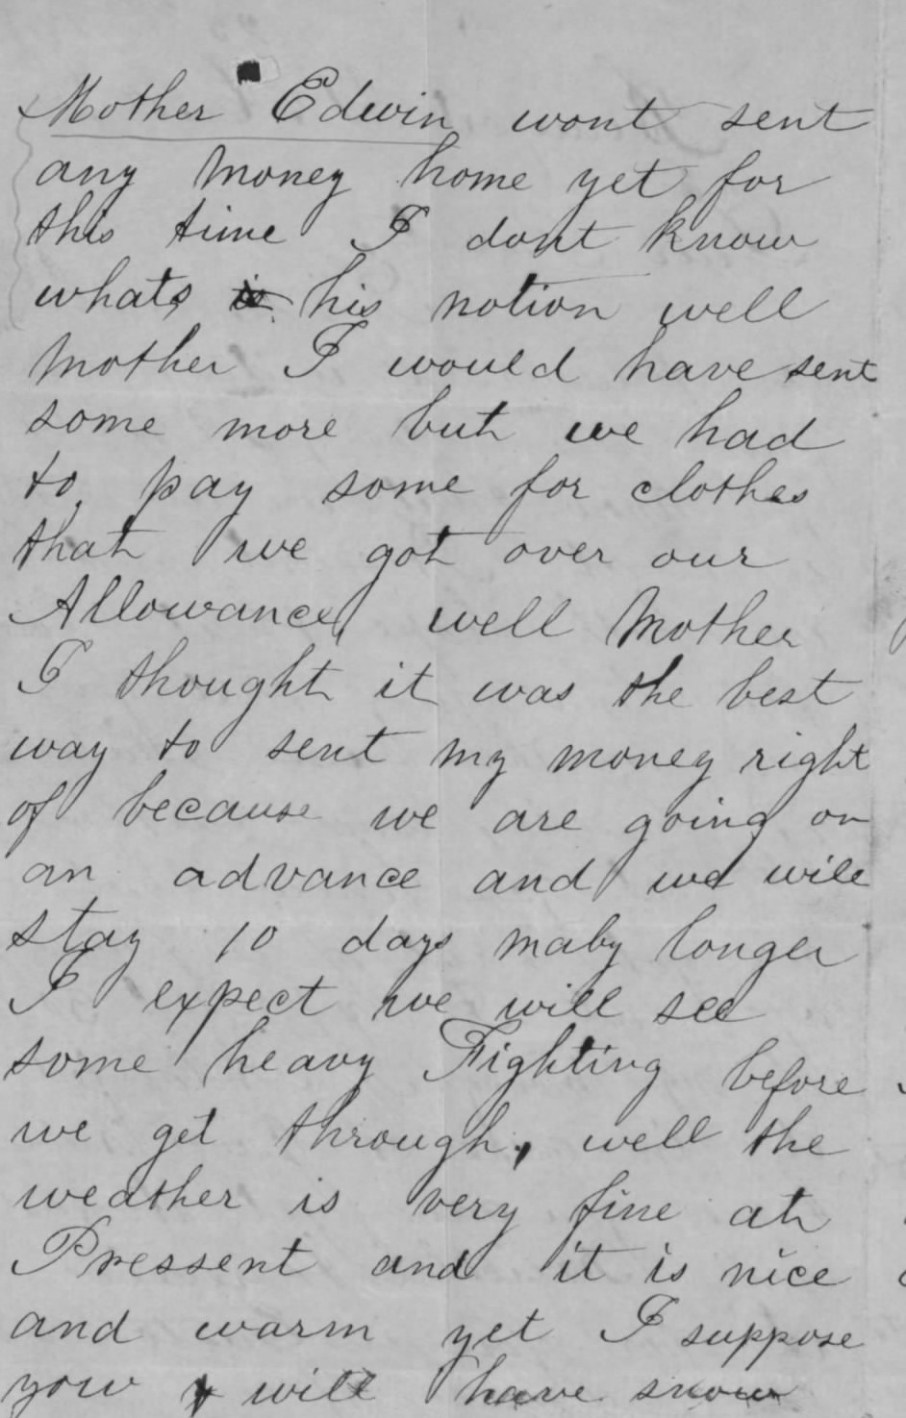 Mother Edwin wont sent
any money home yet for
this time I dont know
whats is his notion well
mother I would have sent
some more but we had
to pay some for clothes
that we got over our
Allowance, well Mother
I thought it was the best
way to sent my money right
of because we are going on
an advance and we will
stay 10 days maby longer
I expect we will see
some heavy Fighting before
we get through, well the
weather is very fine at
Pressent and it is nice
and warm yet I suppose
yow will have snow